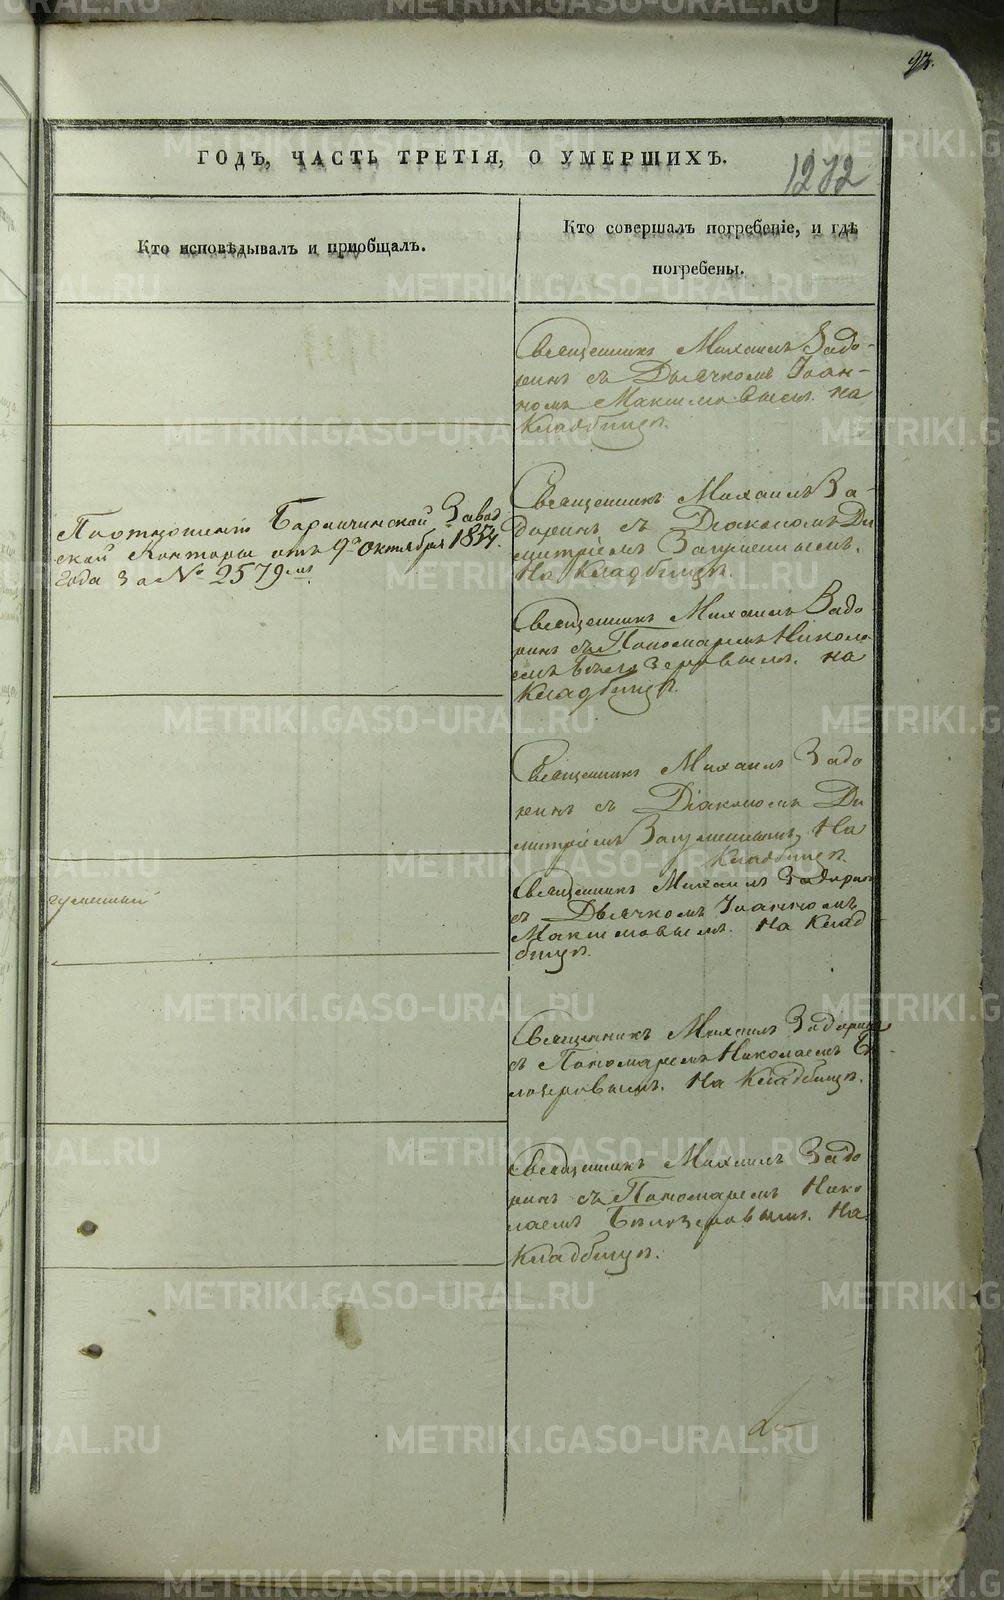 92.
ГОДЪ, ЧАСТЬ ТРЕТІЯ, О УМЕРШИХЪ.
1272
Кто исповѣдывалъ и пріобщалъ.
Кто совершалъ погребеніе, и гдѣ
погребены.
Священникъ Михаилъ Задо-
ринъ съ Дьячкомъ Іоан-
номъ Максимовымъ. на
Кладбищѣ.
По отношенію Баранчинской Завод
ской Конторы отъ 9го октября 1854.
года за № 2579мъ
Священникъ Михаилъ За-
доринъ съ Діакономъ Ди
митріемъ
На Кладбищѣ.
Священникъ Михаилъ Задо
ринъ съ Пономаремъ Никола
емъ Бѣлозеровымъ. на
Кладбищѣ.
Священникъ Михаилъ Задо
ринъ съ Діакономъ Ди
митріемъ На
Кладбищѣ.
Священникъ Михаилъ Задоринъ
съ Дьячкомъ Іоанномъ
Максимовымъ. На Клад
бищѣ.
Священникъ Михаилъ Задоринъ
съ Пономаремъ Николаемъ Бѣ
лозеровымъ. На Кладбищѣ.
Священникъ Михаилъ Задо
ринъ съ Пономаремъ Нико
лаемъ Бѣлозеровымъ. На
Кладбищѣ.
METRIKI.GASO-URAL.RU